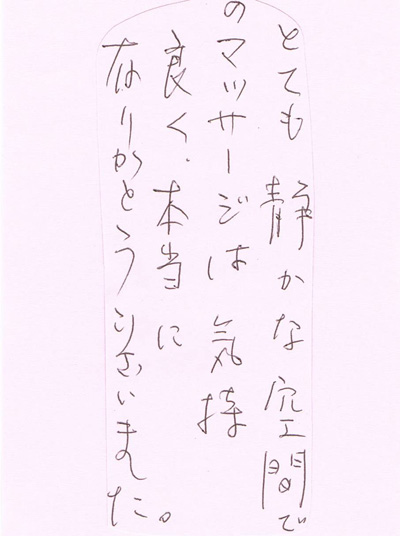 とても静かな空間で
のマッサージは気持
良く、本当に
有りがとうございました。